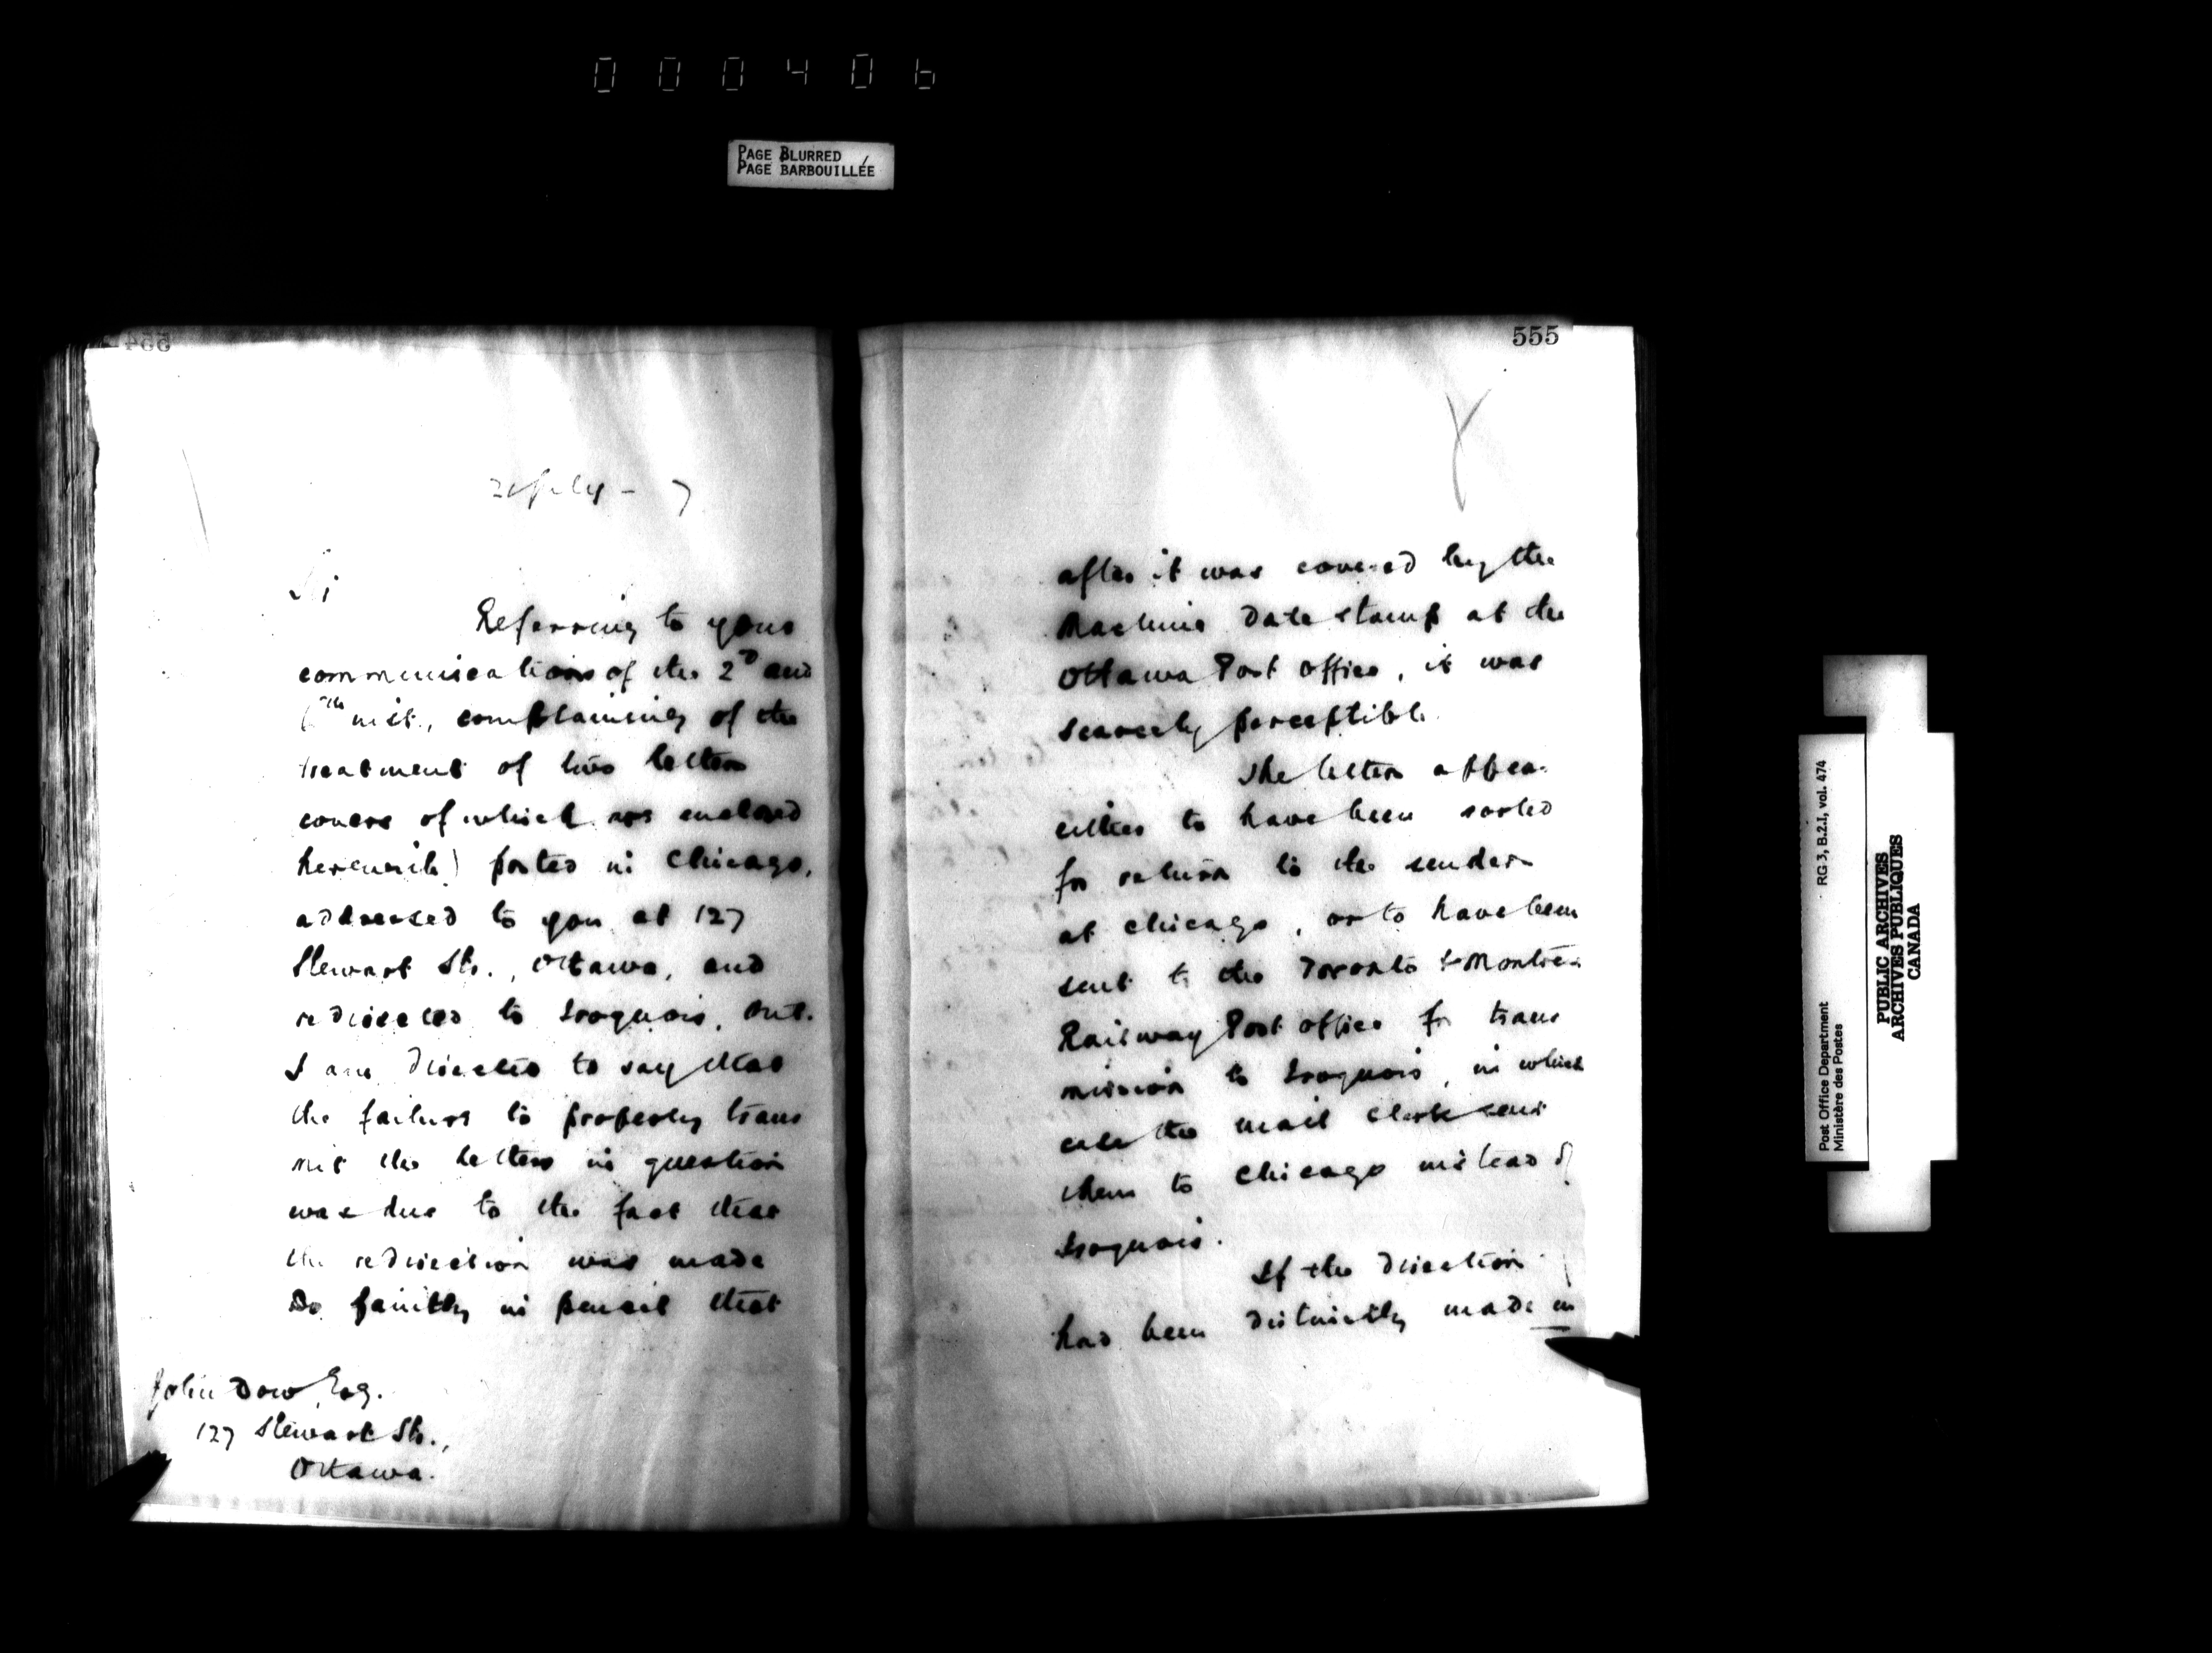 000406
PAGE BLURRED
PAGE BARBOUILLÉE
554
July - 7
Sir
Referring to your
communications of the 2D and
6th inst., complaining of the
treatment of two letters
covers of which are enclosed
herewith) posted in Chicago,
addressed to you at 127
Stewart St., Ottawa, and
redirected to Iroquois, Ont.
I am directed to say that
the failure to properly trans
mit the letters in question
was due to the fact that
the redirection was made
so faintly in pencil that
John Dow Esq.
127 Stewart St.,
Ottawa.
555
after it was covered by the
Machine Date stamp at the
Ottawa Post Office, it was
scarcely perceptible.
The letters appear
either to have been sorted
for return to the sender
at Chicago, or to have been
sent to the Toronto & Montreal
Railway Post Office for trans
mission to Iroquois, in which
case the mail clerk sent
them to Chicago instead of
Iroquois.
If the direction
had been distinctly made in
Post Office Department RG 3, B.2.I, vol. 474
Ministère des Postes
PUBLIC ARCHIVES
ARCHIVES PUBLIQUES
CANADA